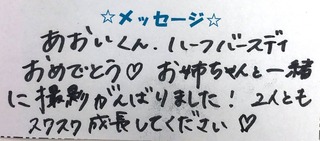 ☆メッセージ☆
あおいくん.ハーフバースディ
おめでとう♡ お姉ちゃんと一緒
に撮影がんばりました! 2人とも
スクスク成長してください♡